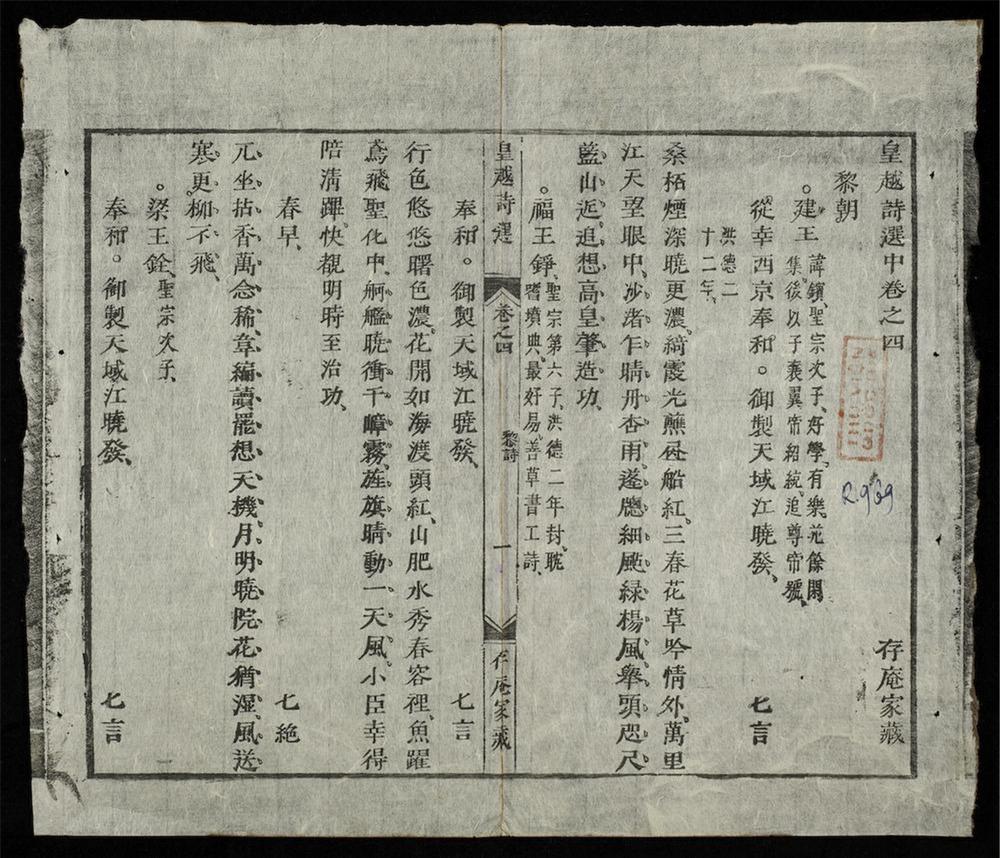 皇越詩選中卷之四 存庵家藏
黎朝
。建王 諱鑌、聖宗次子、好學、有樂苑餘閒
集、後以子襄翼帝紹統、追尊帝號、
從幸西京奉和。御製天域江曉發、 七言
洪德二
十二年、
桑柘煙深曉更濃、綺霞光蘸𠇾船紅、三春花草吟情外、萬里
江天望眼中、沙渚乍晴丹杏雨、遂廰細颭緑楊風、舉頭咫尺
藍山近、追想高皇肇造功、
。福王錚、聖宗第六子、洪德二年封、耽
嗜墳典、最好易、善草書工詩、
皇越詩選 卷之四 黎詩 一 存庵家藏
奉和。御製天域江曉發、 七言
行色悠悠曙色濃、花開如海渡頭紅、山肥水秀春容裡、魚躍
鳶飛聖化中、舸艦曉衝千嶂霧、旌旗晴動一天風、小臣幸得
陪清蹕、快覩明時至治功、
春早、 七絶
兀坐拈香萬念稀、韋編讀罷想天機、月明曉院花猶湿、風送
寒更柳不飛、
。梁王銓、聖宗次子、
奉和。御製天域江曉發、 七言
R.969